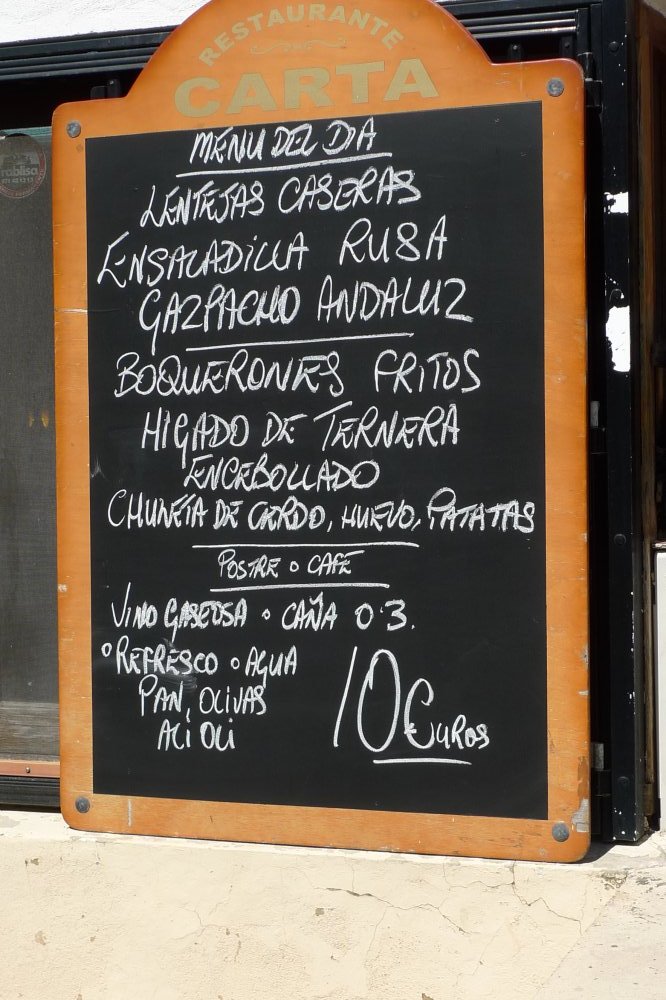 RESTAURANTE
CARTA
MENU DEL DIA
LENTEJAS CASERAS
ENSALADILLA RUSA
GAZPACHO ANDALUZ
BOQUERONES FRITOS
HIGADO DE TERNERA
ENCEBOLLADO
CHULETA DE CERDO, HUEVO, PATATAS
POSTRE o CAFÉ
VINO GASEOSA o CAÑA 0'3.
o REFRESCO o AGUA
PAN, OLIVAS
ALI OLI
10 €uros